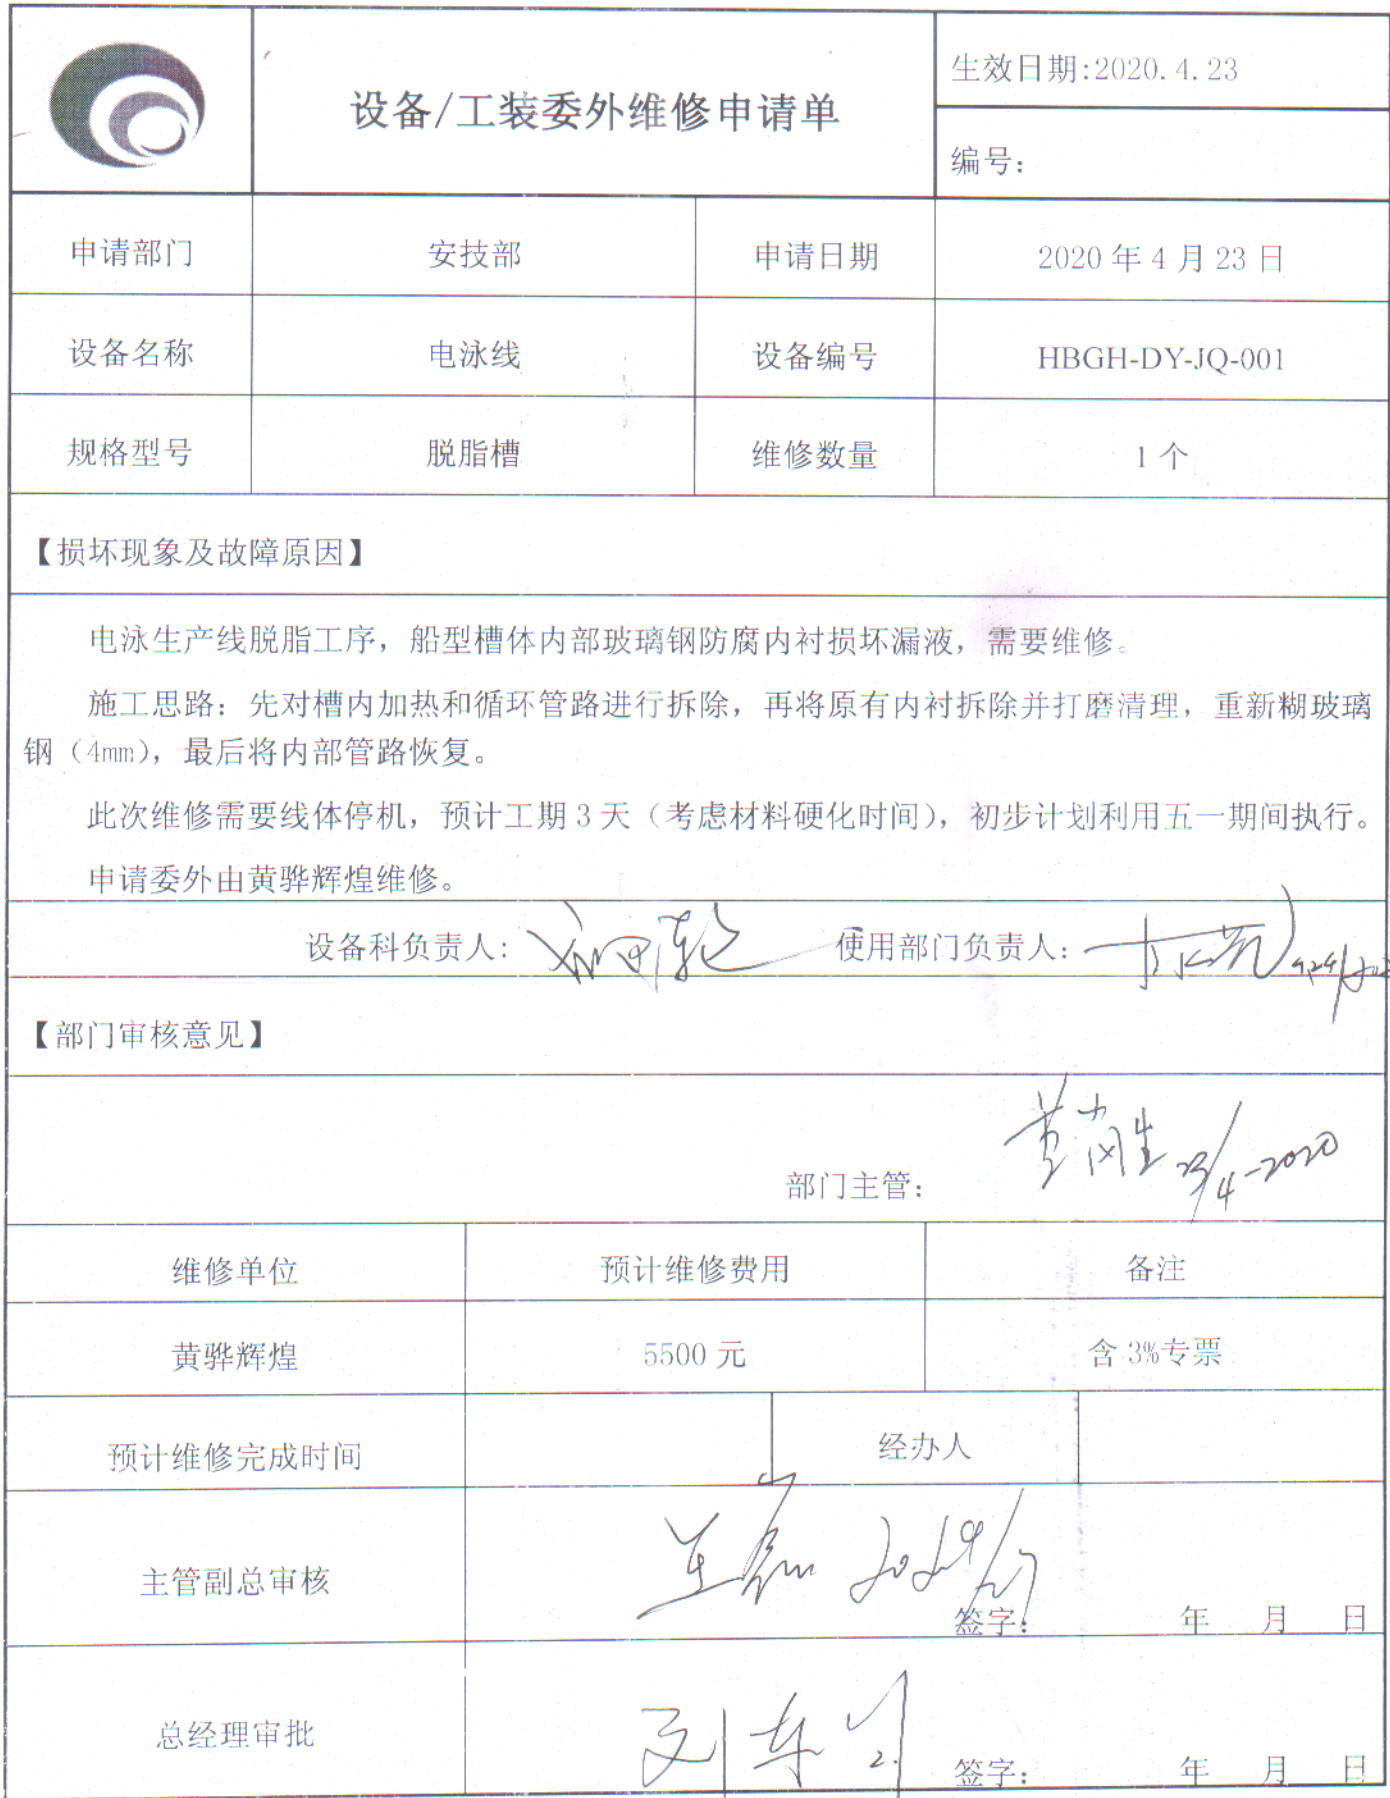 设备/工装委外维修申请单
生效日期:2020.4.23
编号:
申请部门 安技部 申请日期 2020 年 4 月 23 日
设备名称 电泳线 设备编号 HBGH-DY-JQ-001
规格型号 脱脂槽 维修数量 1 个
【损坏现象及故障原因】
电泳生产线脱脂工序，船型槽体内部玻璃钢防腐内衬损坏漏液，需要维修。
施工思路：先对槽内加热和循环管路进行拆除，再将原有内衬拆除并打磨清理，重新糊玻璃
钢（4mm），最后将内部管路恢复。
此次维修需要线体停机，预计工期 3 天（考虑材料硬化时间），初步计划利用五一期间执行。
申请委外由黄骅辉煌维修。
设备科负责人: 使用部门负责人:
【部门审核意见】
部门主管: 23/4-2020
维修单位 预计维修费用 备注
黄骅辉煌 5500 元 含 3%专票
预计维修完成时间 经办人
主管副总审核 签字: 年 月 日
总经理审批 签字: 年 月 日